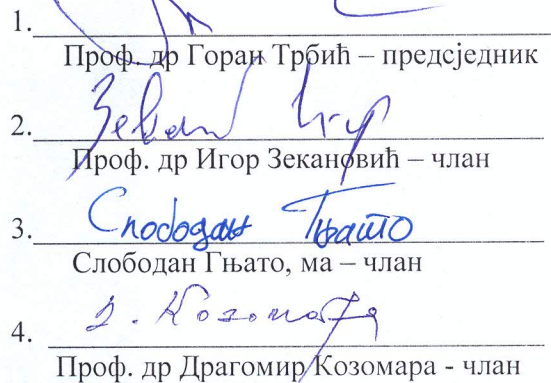 1.
Проф. др Горан Трбић – предсједник
2.
Проф. др Игор Зекановић – члан
3. Слободан Гњато
Слободан Гњато, ма – члан
4. Д. Козомара
Проф. др Драгомир Козомара - члан